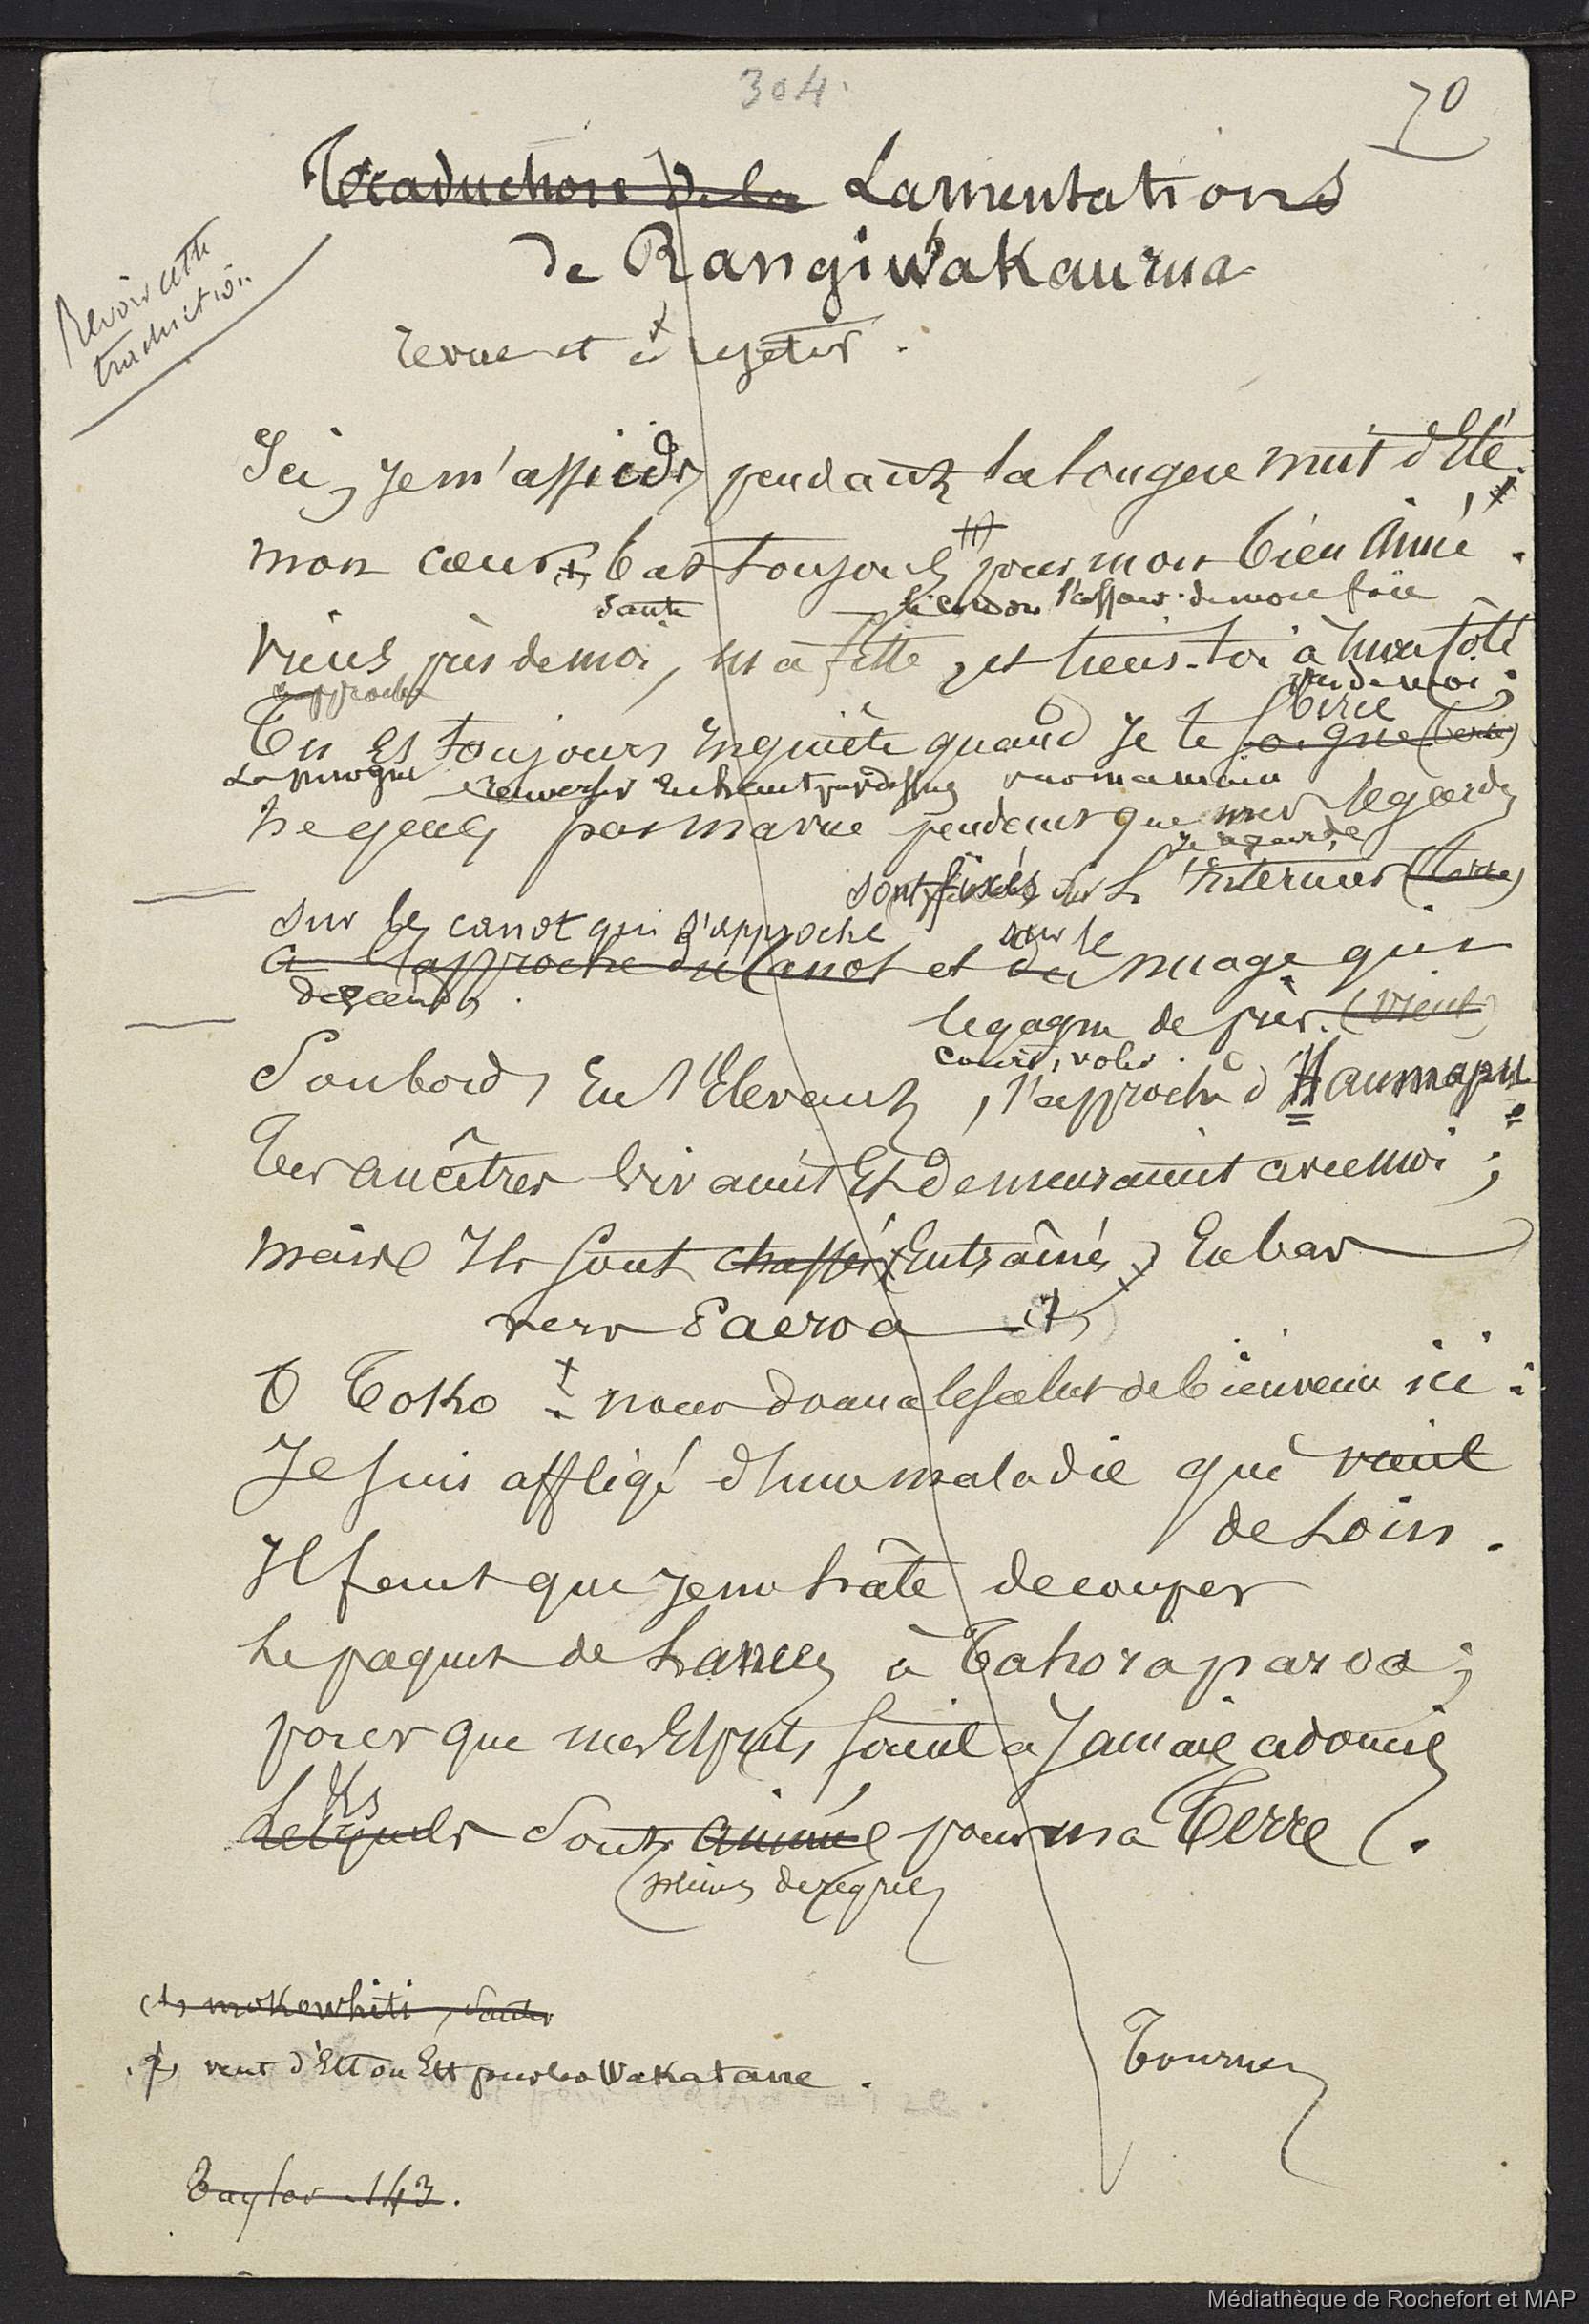 304.
70
Traduction de la Lamentations
de Rangiwakaurua
Revoir cette
traduction
revue et à rejeter.
Ici, Je m'assieds, pendant la longue nuit d'Eté,
mon cœur bat toujours pour mon bien Aimé.
saute
l'essor de mon foie
Viens près de moi, ma fille, et tiens-toi à mon côté
approche
près de moi;
Tu Es toujours Inquiète quand Je te soigne (terre)
La pirogue renverser en haut par dessus
ma main
Ne gène pas ma vue pendant que mes regards
je regarde
sont fixés sur L'Intérieur (terre)
sur le canot qui s'approche
sur le
à l'approche du Canot et du nuage qui
descend.
le gagne de près. (vient)
courir, voler.
Son bord, En s'Elevant, s'approche d'Haumapu
Tes ancêtres vivaient Et demeuraient avec moi;
mais Ils sont chassés (Entraînés) En bas
vers Paeroa
O Toko nous donna le salut de bienvenue ici:
Je suis affligé d'une maladie qui vient
de Loin.
Il faut que je me hâte de couper
Le paquet de Lances à Tahoraparoa;
pour que mes Esprits soient à Jamais adoucis
Ils
Lesquels sont animés pour ma Terre.
pleins de regrets
(1) mokowhiti, sauter
vent d'Est ou Est pour les Wakatane.
Tournez
Taylor 143.
Médiathèque de Rochefort et MAP